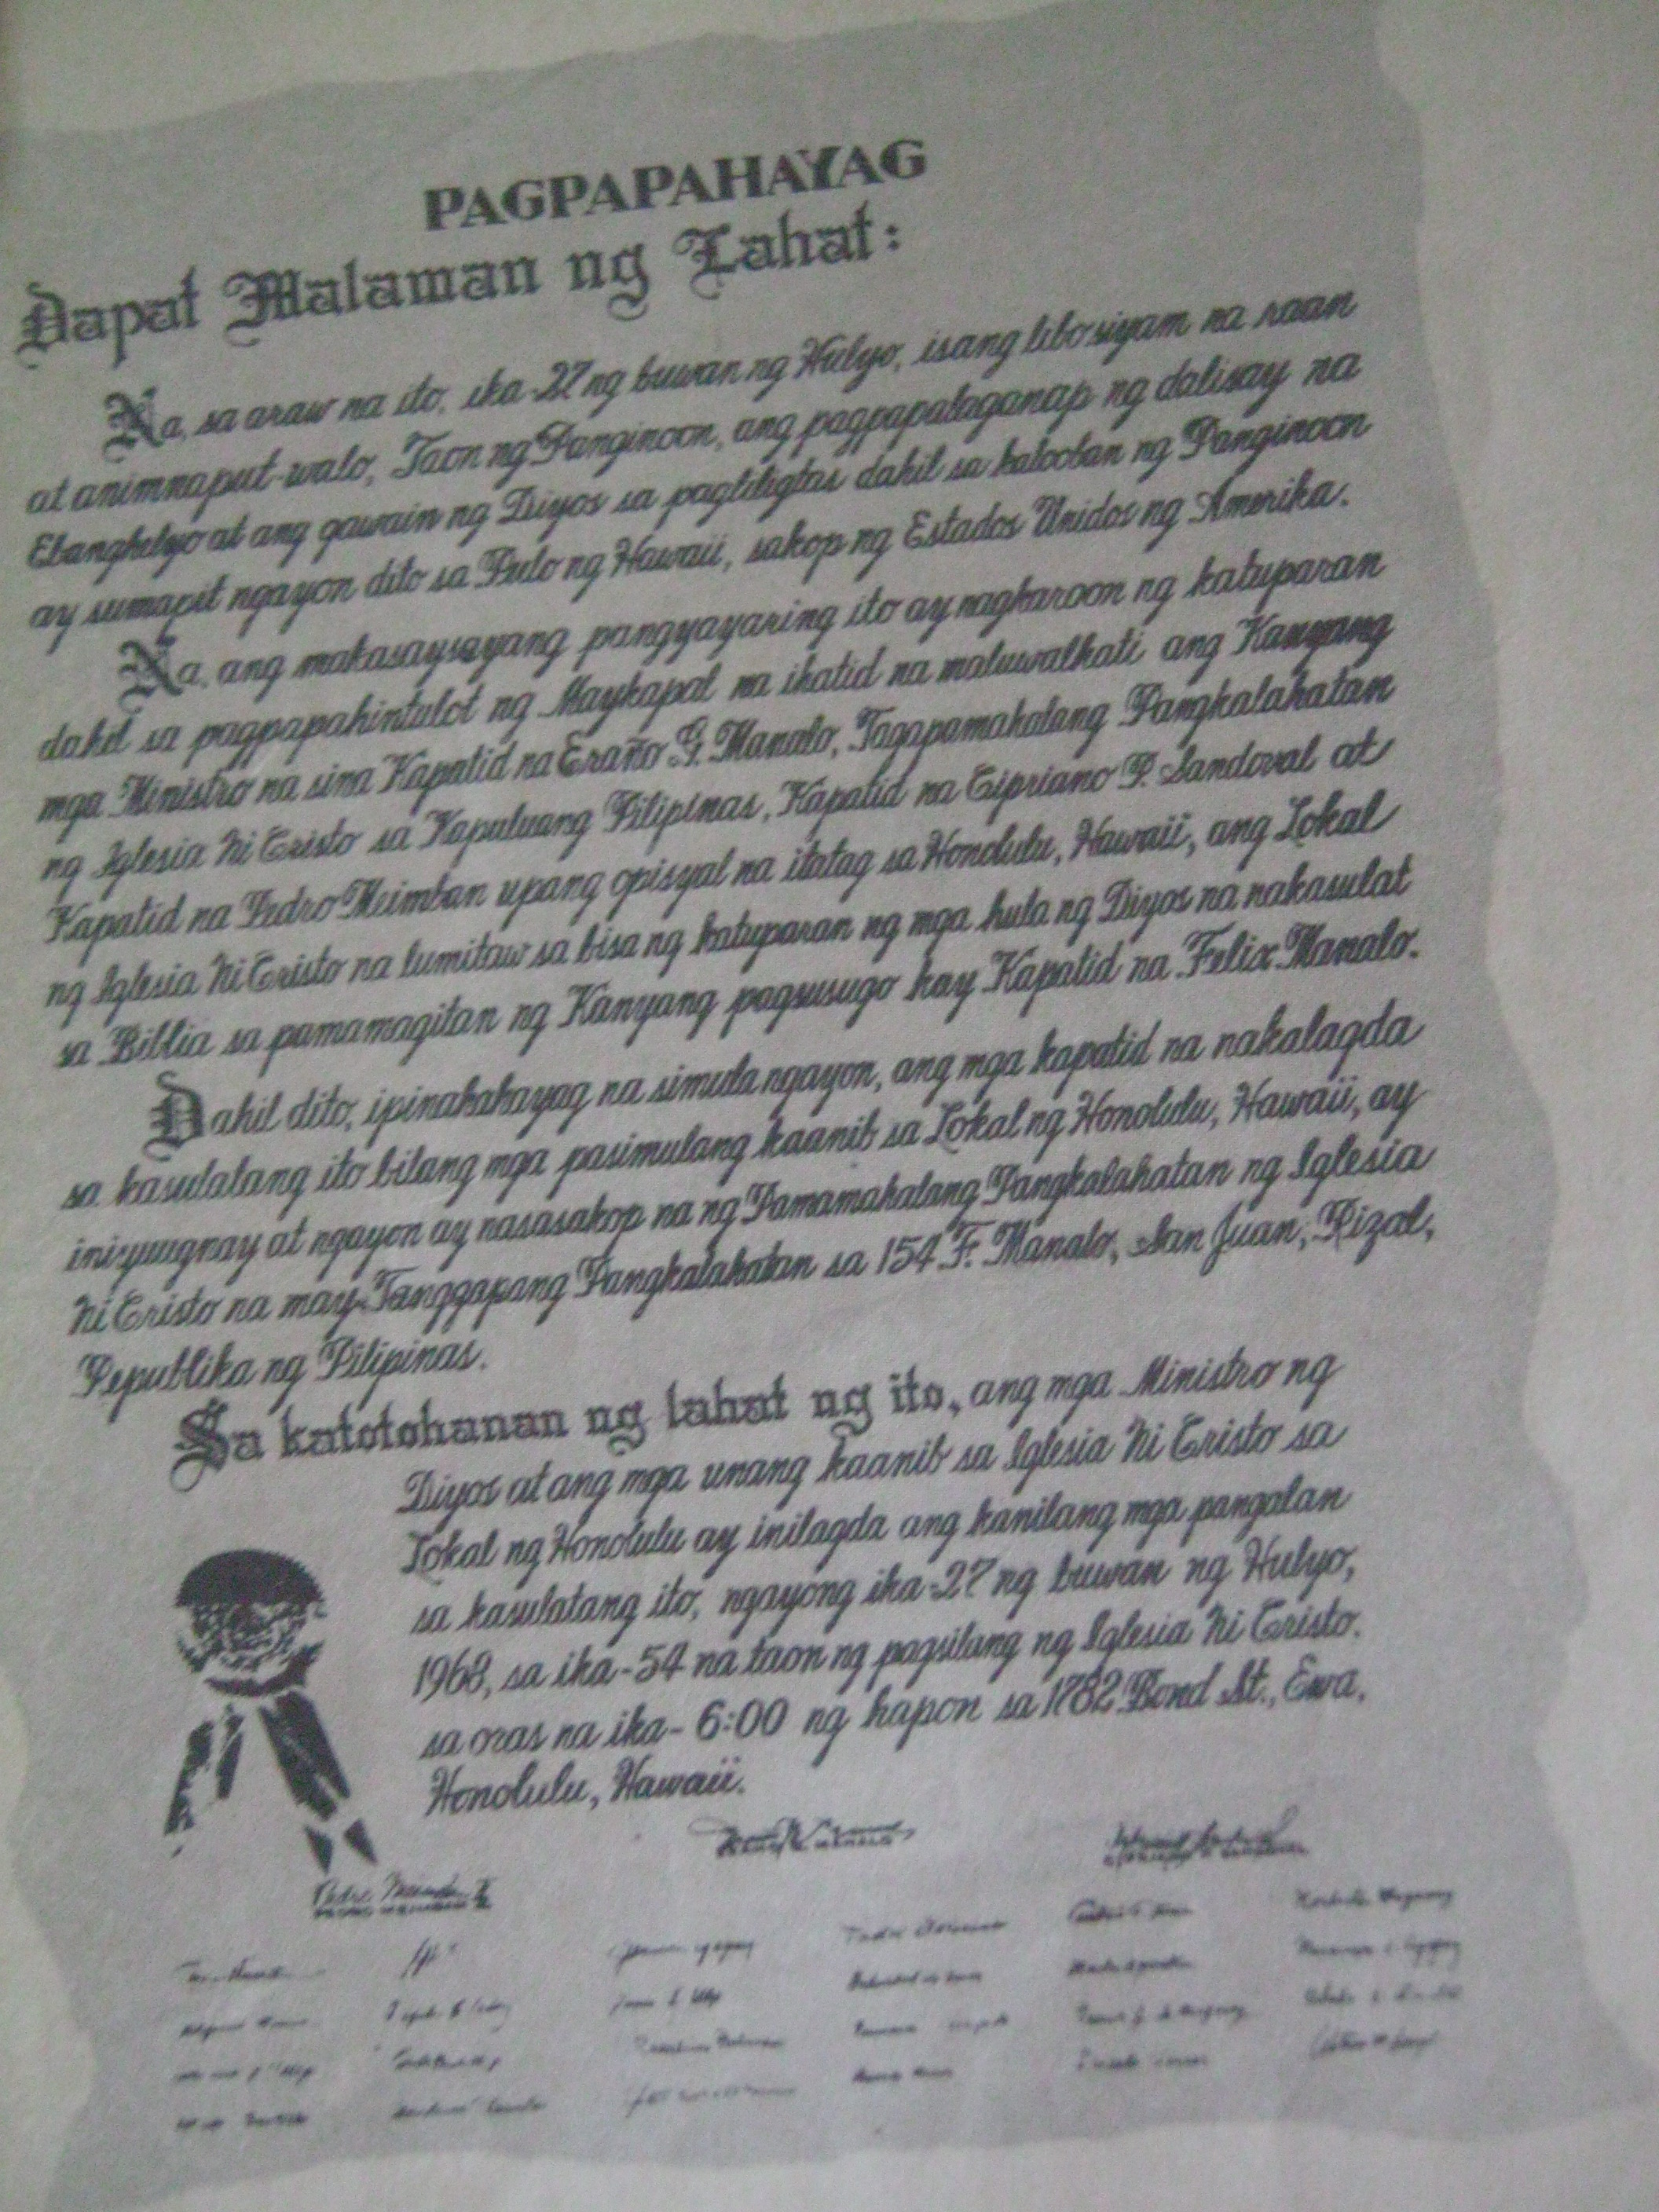 PAGPAPAHAYAG
Dapat Malaman ng Lahat:
Na, sa araw na ito, ika-27 ng buwan ng Hulyo, isang libo siyam na raan
at animnaput-walo, Taon ng Panginoon, ang pagpapalaganap ng dalisay na
Ebanghelyo at ang gawain ng Diyos sa pagliligtas dahil sa kalooban ng Panginoon
ay sumapit ngayon dito sa Pulo ng Hawaii, sakop ng Estados Unidos ng Amerika.
Na, ang makasaysayang pangyayaring ito ay nagkaroon ng katuparan
dahil sa pagpapahintulot ng Maykapal na ihatid na maluwalhati ang Kanyang
mga Ministro na sina Kapatid na Eraño G. Manalo, Tagapamahalang Pangkalahatan
ng Iglesia Ni Cristo sa Kapuluang Pilipinas, Kapatid na Cipriano P. Sandoval at
Kapatid na Pedro Meimban upang opisyal na itatag sa Honolulu, Hawaii, ang Lokal
ng Iglesia Ni Cristo na lumitaw sa bisa ng katuparan ng mga hula ng Diyos na nakasulat
sa Biblia sa pamamagitan ng Kanyang pagsusugo kay Kapatid na Felix Manalo.
Dahil dito, ipinahahayag na simula ngayon, ang mga kapatid na nakalagda
sa kasulatang ito bilang mga pasimulang kaanib sa Lokal ng Honolulu, Hawaii, ay
iniuugnay at ngayon ay nasasakop na ng Pamamahalang Pangkalahatan ng Iglesia
Ni Cristo na may Tanggapang Pangkalahatan sa 154 F. Manalo, San Juan, Rizal,
Republika ng Pilipinas.
Sa katotohanan ng lahat ng ito, ang mga Ministro ng
Diyos at ang mga unang kaanib sa Iglesia Ni Cristo sa
Lokal ng Honolulu ay inilagda ang kanilang mga pangalan
sa kasulatang ito, ngayong ika-27 ng buwan ng Hulyo,
1968, sa ika-54 na taon ng pagsilang ng Iglesia Ni Cristo.
sa oras na ika-6:00 ng hapon sa 1782 Bond St., Ewa,
Honolulu, Hawaii.